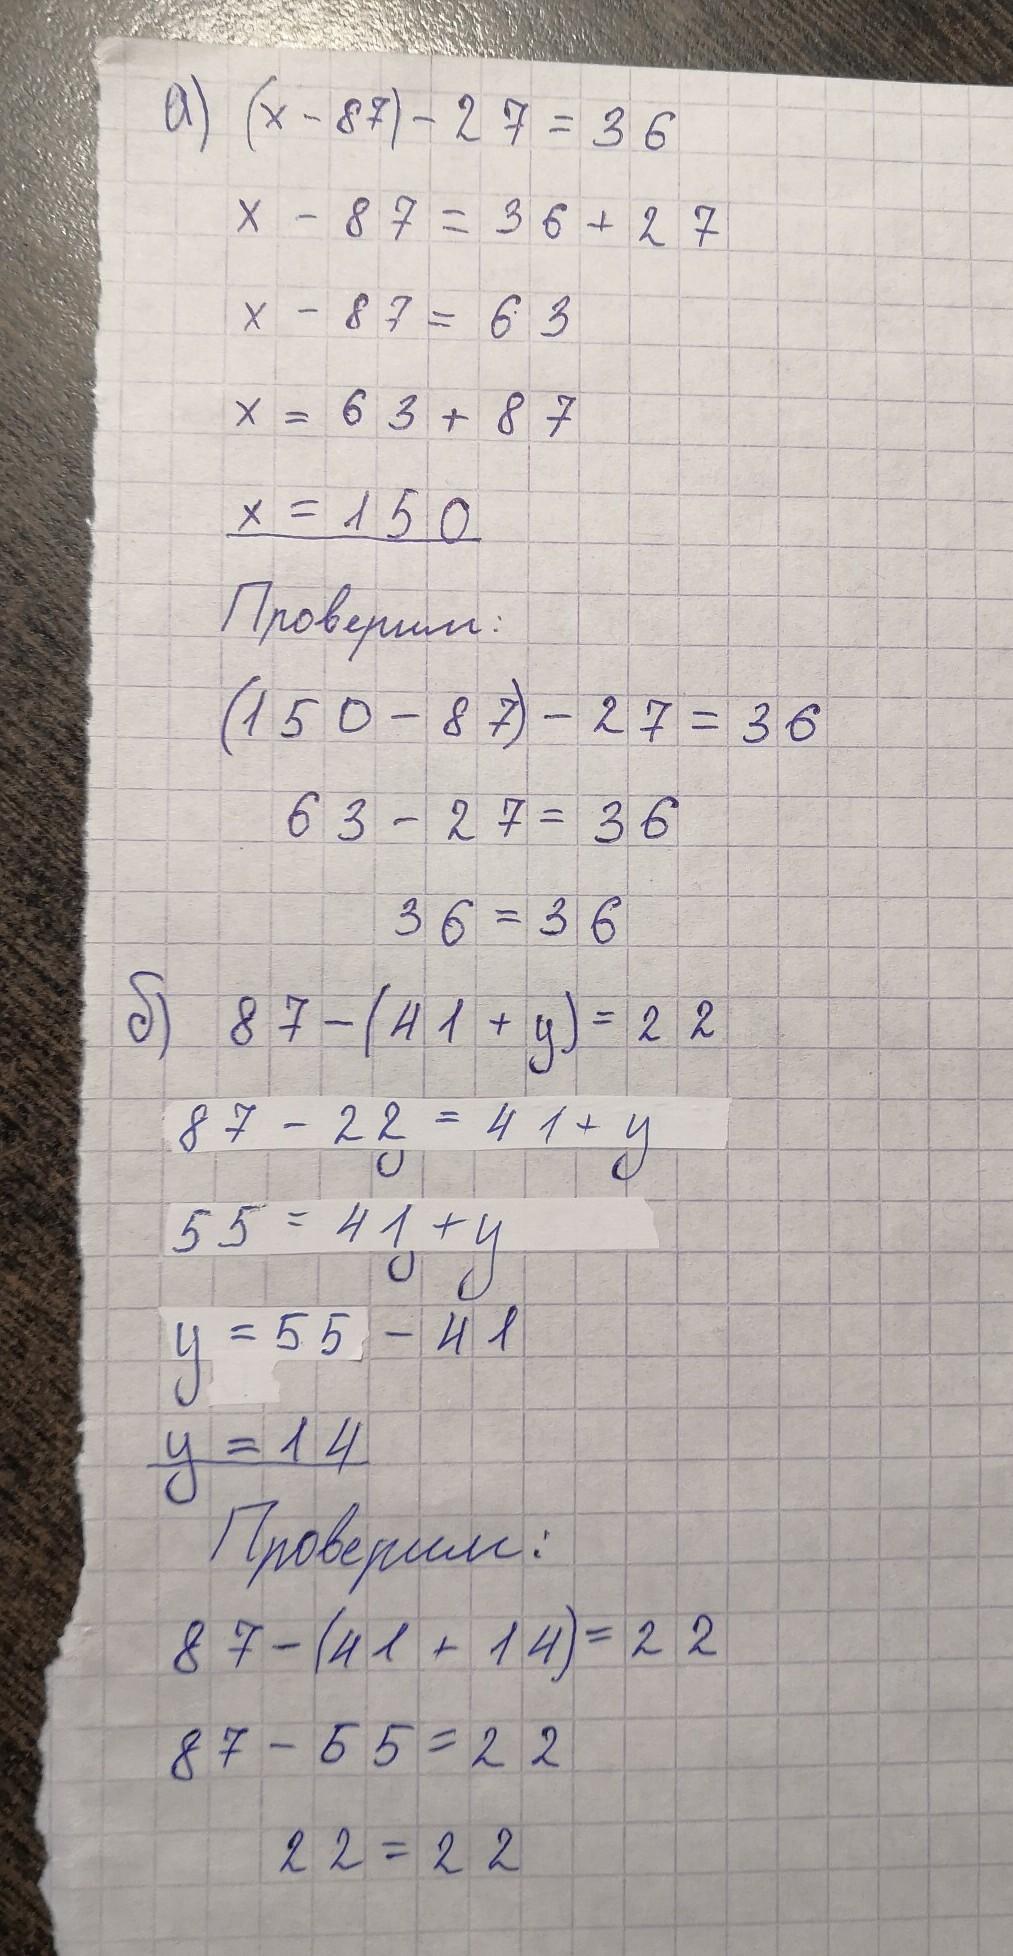 а) (x - 87) - 27 = 36
x - 87 = 36 + 27
x - 87 = 63
x = 63 + 87
x = 150
Проверим:
(150 - 87) - 27 = 36
63 - 27 = 36
36 = 36
б) 87 - (41 + y) = 22
87 - 22 = 41 + y
55 = 41 + y
y = 55 - 41
y = 14
Проверим:
87 - (41 + 14) = 22
87 - 55 = 22
22 = 22